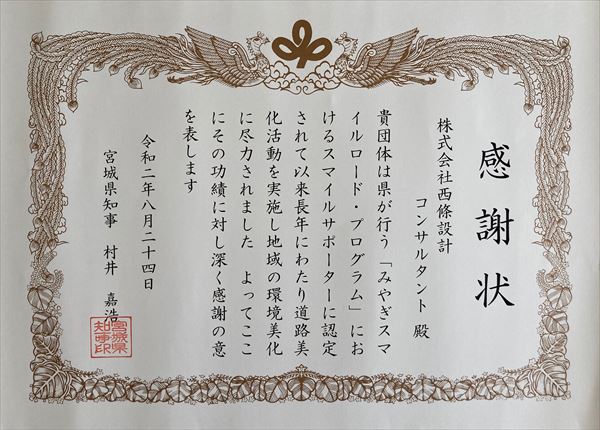 感謝状
株式会社西條設計
コンサルタント 殿
貴団体は県が行う「みやぎスマ
イルロード・プログラム」にお
けるスマイルサポーターに認定
されて以来長年にわたり道路美
化活動を実施し地域の環境美化
に尽力されました よってここ
にその功績に対し深く感謝の意
を表します
令和二年八月二十四日
宮城県知事 村井 嘉浩
宮城県
知事印